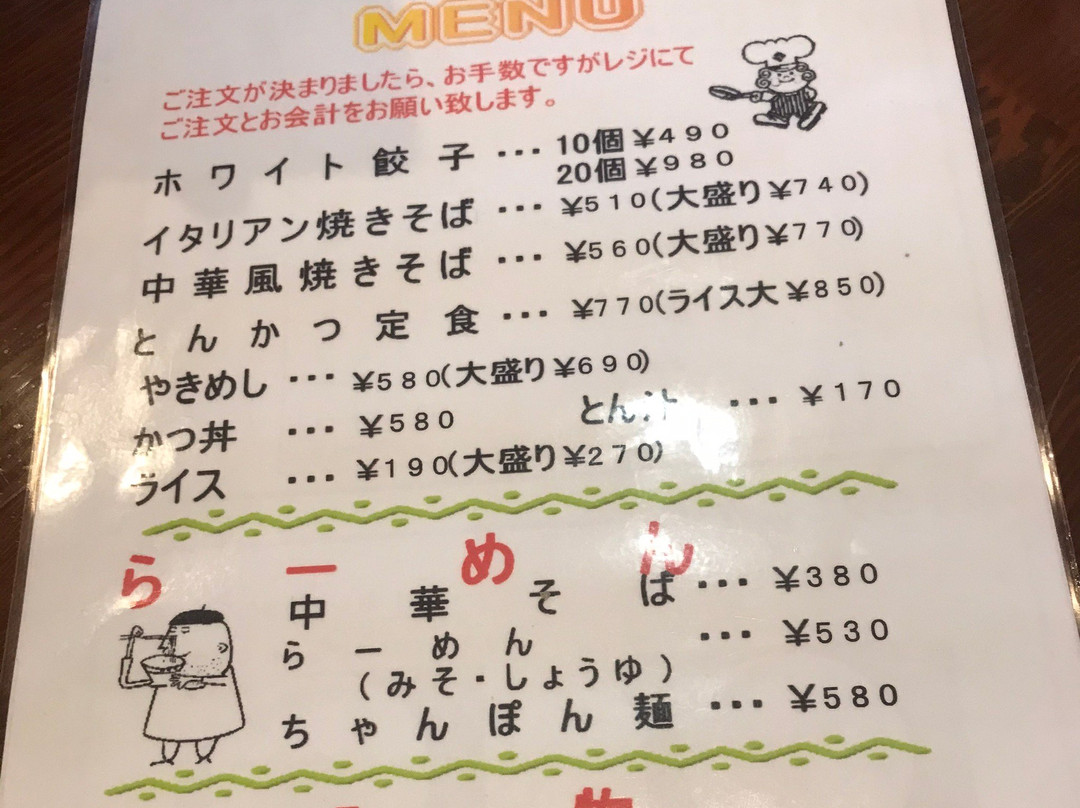 MENU
ご注文が決まりましたら、お手数ですがレジにて
ご注文とお会計をお願い致します。
ホワイト餃子 ・・・ 10個 ¥490
20個 ¥980
イタリアン焼きそば ・・・ ¥510(大盛り¥740)
中華風焼きそば ・・・ ¥560(大盛り¥770)
とんかつ定食 ・・・ ¥770(ライス大¥850)
やきめし ・・・ ¥580(大盛り¥690)
かつ丼 ・・・ ¥580 とん汁 ・・・ ¥170
ライス ・・・ ¥190(大盛り¥270)
らーめん
中華そば ・・・ ¥380
らーめん ・・・ ¥530
(みそ・しょうゆ)
ちゃんぽん麺 ・・・ ¥580